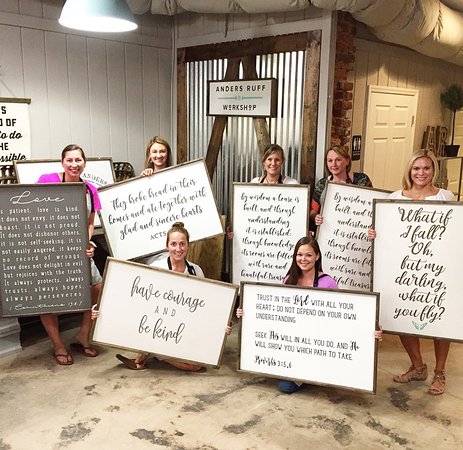 ANDERS RUFF
WORKSHOP
S
D OF
to do
the
possible
ANDERS
Love
patient, love is kind.
it does not envy, it does
boast, it is not proud
it does not dishonor others,
it is not self-seeking, it is
not easily angered, it keeps
no record of wrongs.
Love does not delight in evil
but rejoices with the truth.
It always protects, always
trusts, always hopes,
always perseveres
They broke bread in their
homes and ate together with
glad and sincere hearts
ACTS
By wisdom a house is
built, and through
understanding
it is established; through
knowledge
its rooms are filled
with rare and
beautiful treasures
By wisdom a house is
built, and through
understanding
it is established;
through knowledge
its rooms are filled
with rare and
beautiful
What if
I fall?
Oh,
but my
darling,
what if
you fly?
have courage
AND
be kind
TRUST IN THE Lord WITH ALL YOUR
HEART; DO NOT DEPEND ON YOUR OWN
UNDERSTANDING
SEEK His WILL IN ALL YOU DO, AND He
WILL SHOW YOU WHICH PATH TO TAKE.
Proverbs 3:5,6